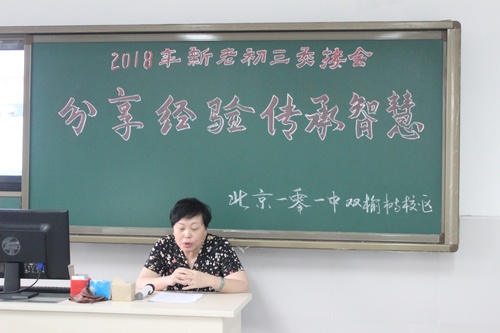 2018年新老初三交接会
分享经验传承智慧
北京一零一中双榆树校区